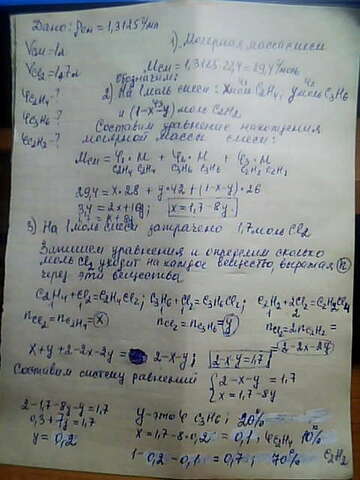 Дано: ρсм = 1,3125 г/мл
1) Молярная масса смеси
Vсм = 1л
VCl2 = 1,7л
Mсм = 1,3125·22,4 = 29,4 г/моль
обозначим:
φC2H4 - ?
2) На 1 моль смеси: x моль C2H4; y моль C3H6
φC3H6 - ?
и (1-x-y) моль C2H2
φC2H2 - ?
Составим уравнение нахождения
молярной массы смеси:
Mсм = φ1·M + φ2·M + φ3·M
C2H4 C2H4 C3H6 C3H6 C2H2 C2H2
29,4 = x·28 + y·42 + (1-x-y)·26
3,4 = 2x + 16y; x = 1,7-8y.
3) На 1 моль смеси затрачено 1,7 моль Cl2
Запишем уравнения и определим сколько
моль Cl2 уходит на каждое вещество, выражая n
через эти вещества
C2H4+Cl2=C2H4Cl2; C3H6+Cl2=C3H6Cl2; C2H2+2Cl2=C2H2Cl4
nCl2 = nC2H4 = x
nCl2 = nC3H6 = y
nCl2 = 2nC2H2 =
= 2-2x-2y
x+y+2-2x-2y = 2-x-y; 2-x-y=1,7
Составим систему уравнений
2-x-y = 1,7
x = 1,7-8y
0,3+7y=1,7
y = 0,2
y - это φ C3H6; 20%
x = 1,7-8·0,2 = 0,1; φC2H4 10%
1-0,2-0,1 = 0,7; 70% C2H2